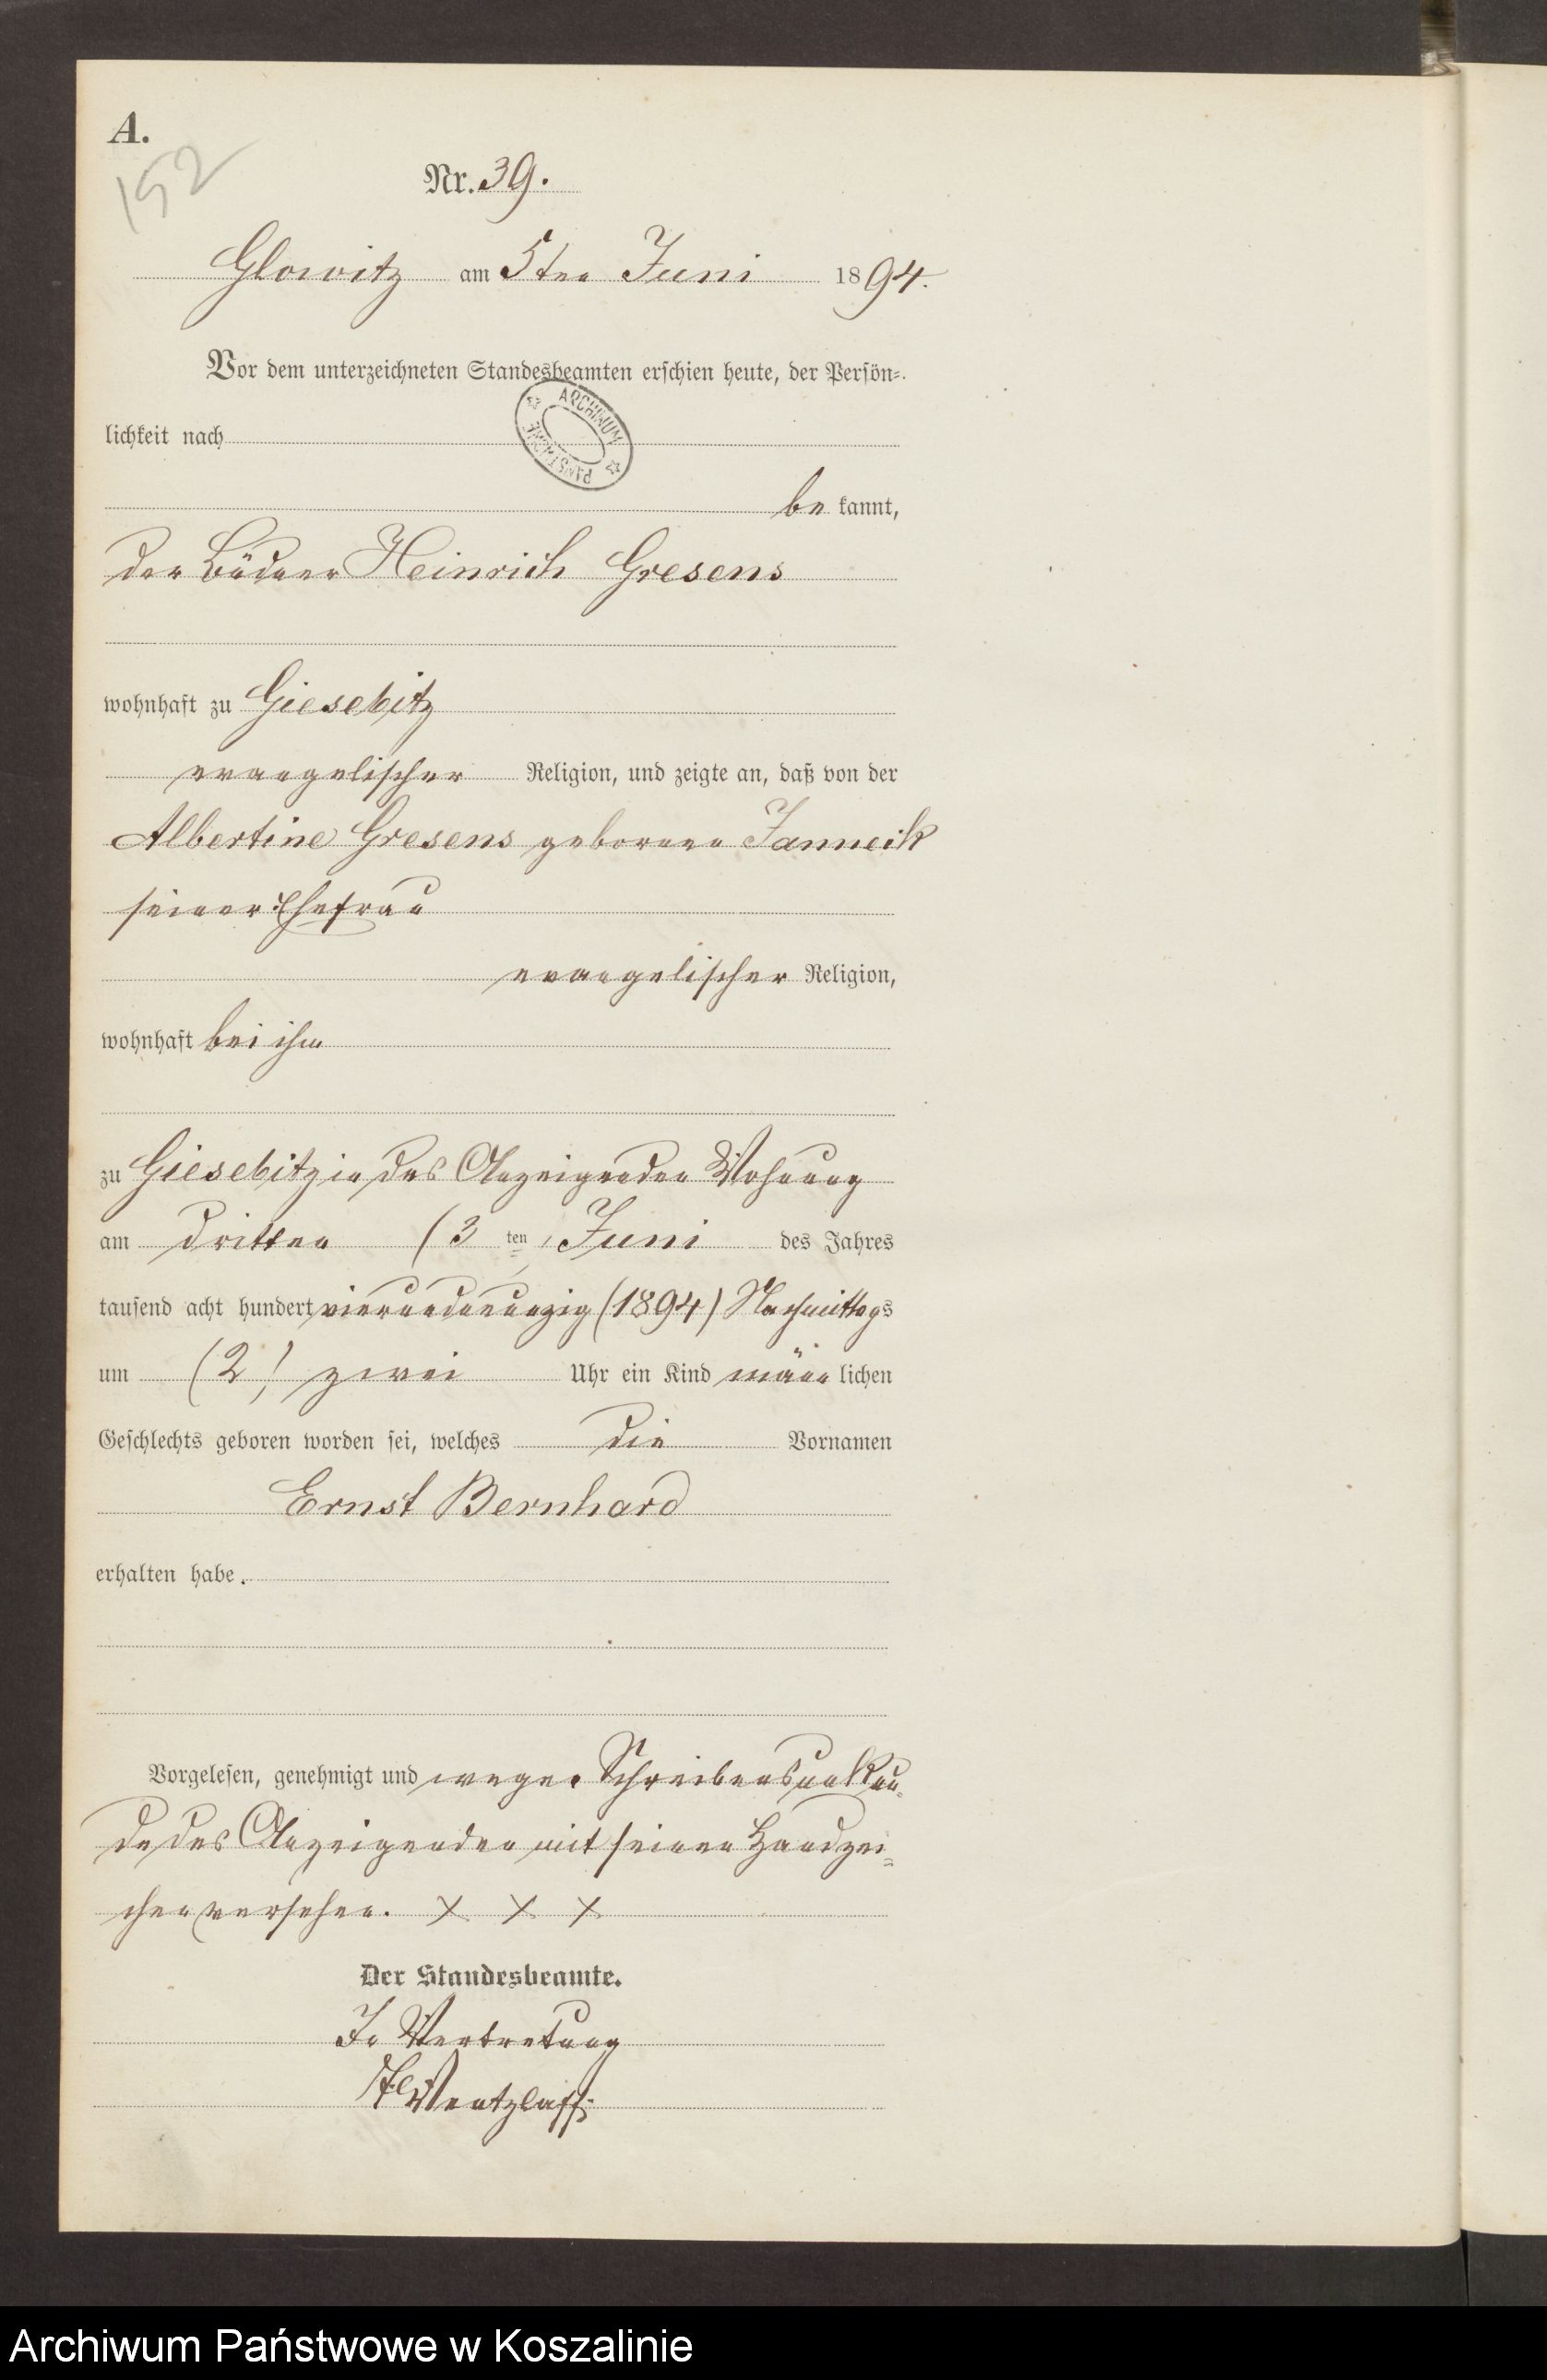 A.
152
Nr. 39.
Glowitz am 5ten Juni 1894.
Vor dem unterzeichneten Standesbeamten erschien heute, der Persön-
lichkeit nach
ARCHIWUM
PAŃSTWOWE
be kannt,
der Büdner Heinrich Gresens
wohnhaft zu Giesebitz
evangelischer Religion, und zeigte an, daß von der
Albertine Gresens geborene Janneck
seiner Ehefrau
evangelischer Religion,
wohnhaft bei ihm
zu Giesebitz in des Anzeigenden Wohnung
am dritten (3 ten) Juni des Jahres
tausend acht hundert vierundneunzig (1894) Nachmittags
um (2) zwei Uhr ein Kind männ lichen
Geschlechts geboren worden sei, welches die Vornamen
Ernst Bernhard
erhalten habe.
Vorgelesen, genehmigt und wegen Schreibensunkun-
de des Anzeigenden mit seinen Handzei-
chen versehen. X X X
Der Standesbeamte.
In Vertretung
Wentzlaff.
Archiwum Państwowe w Koszalinie